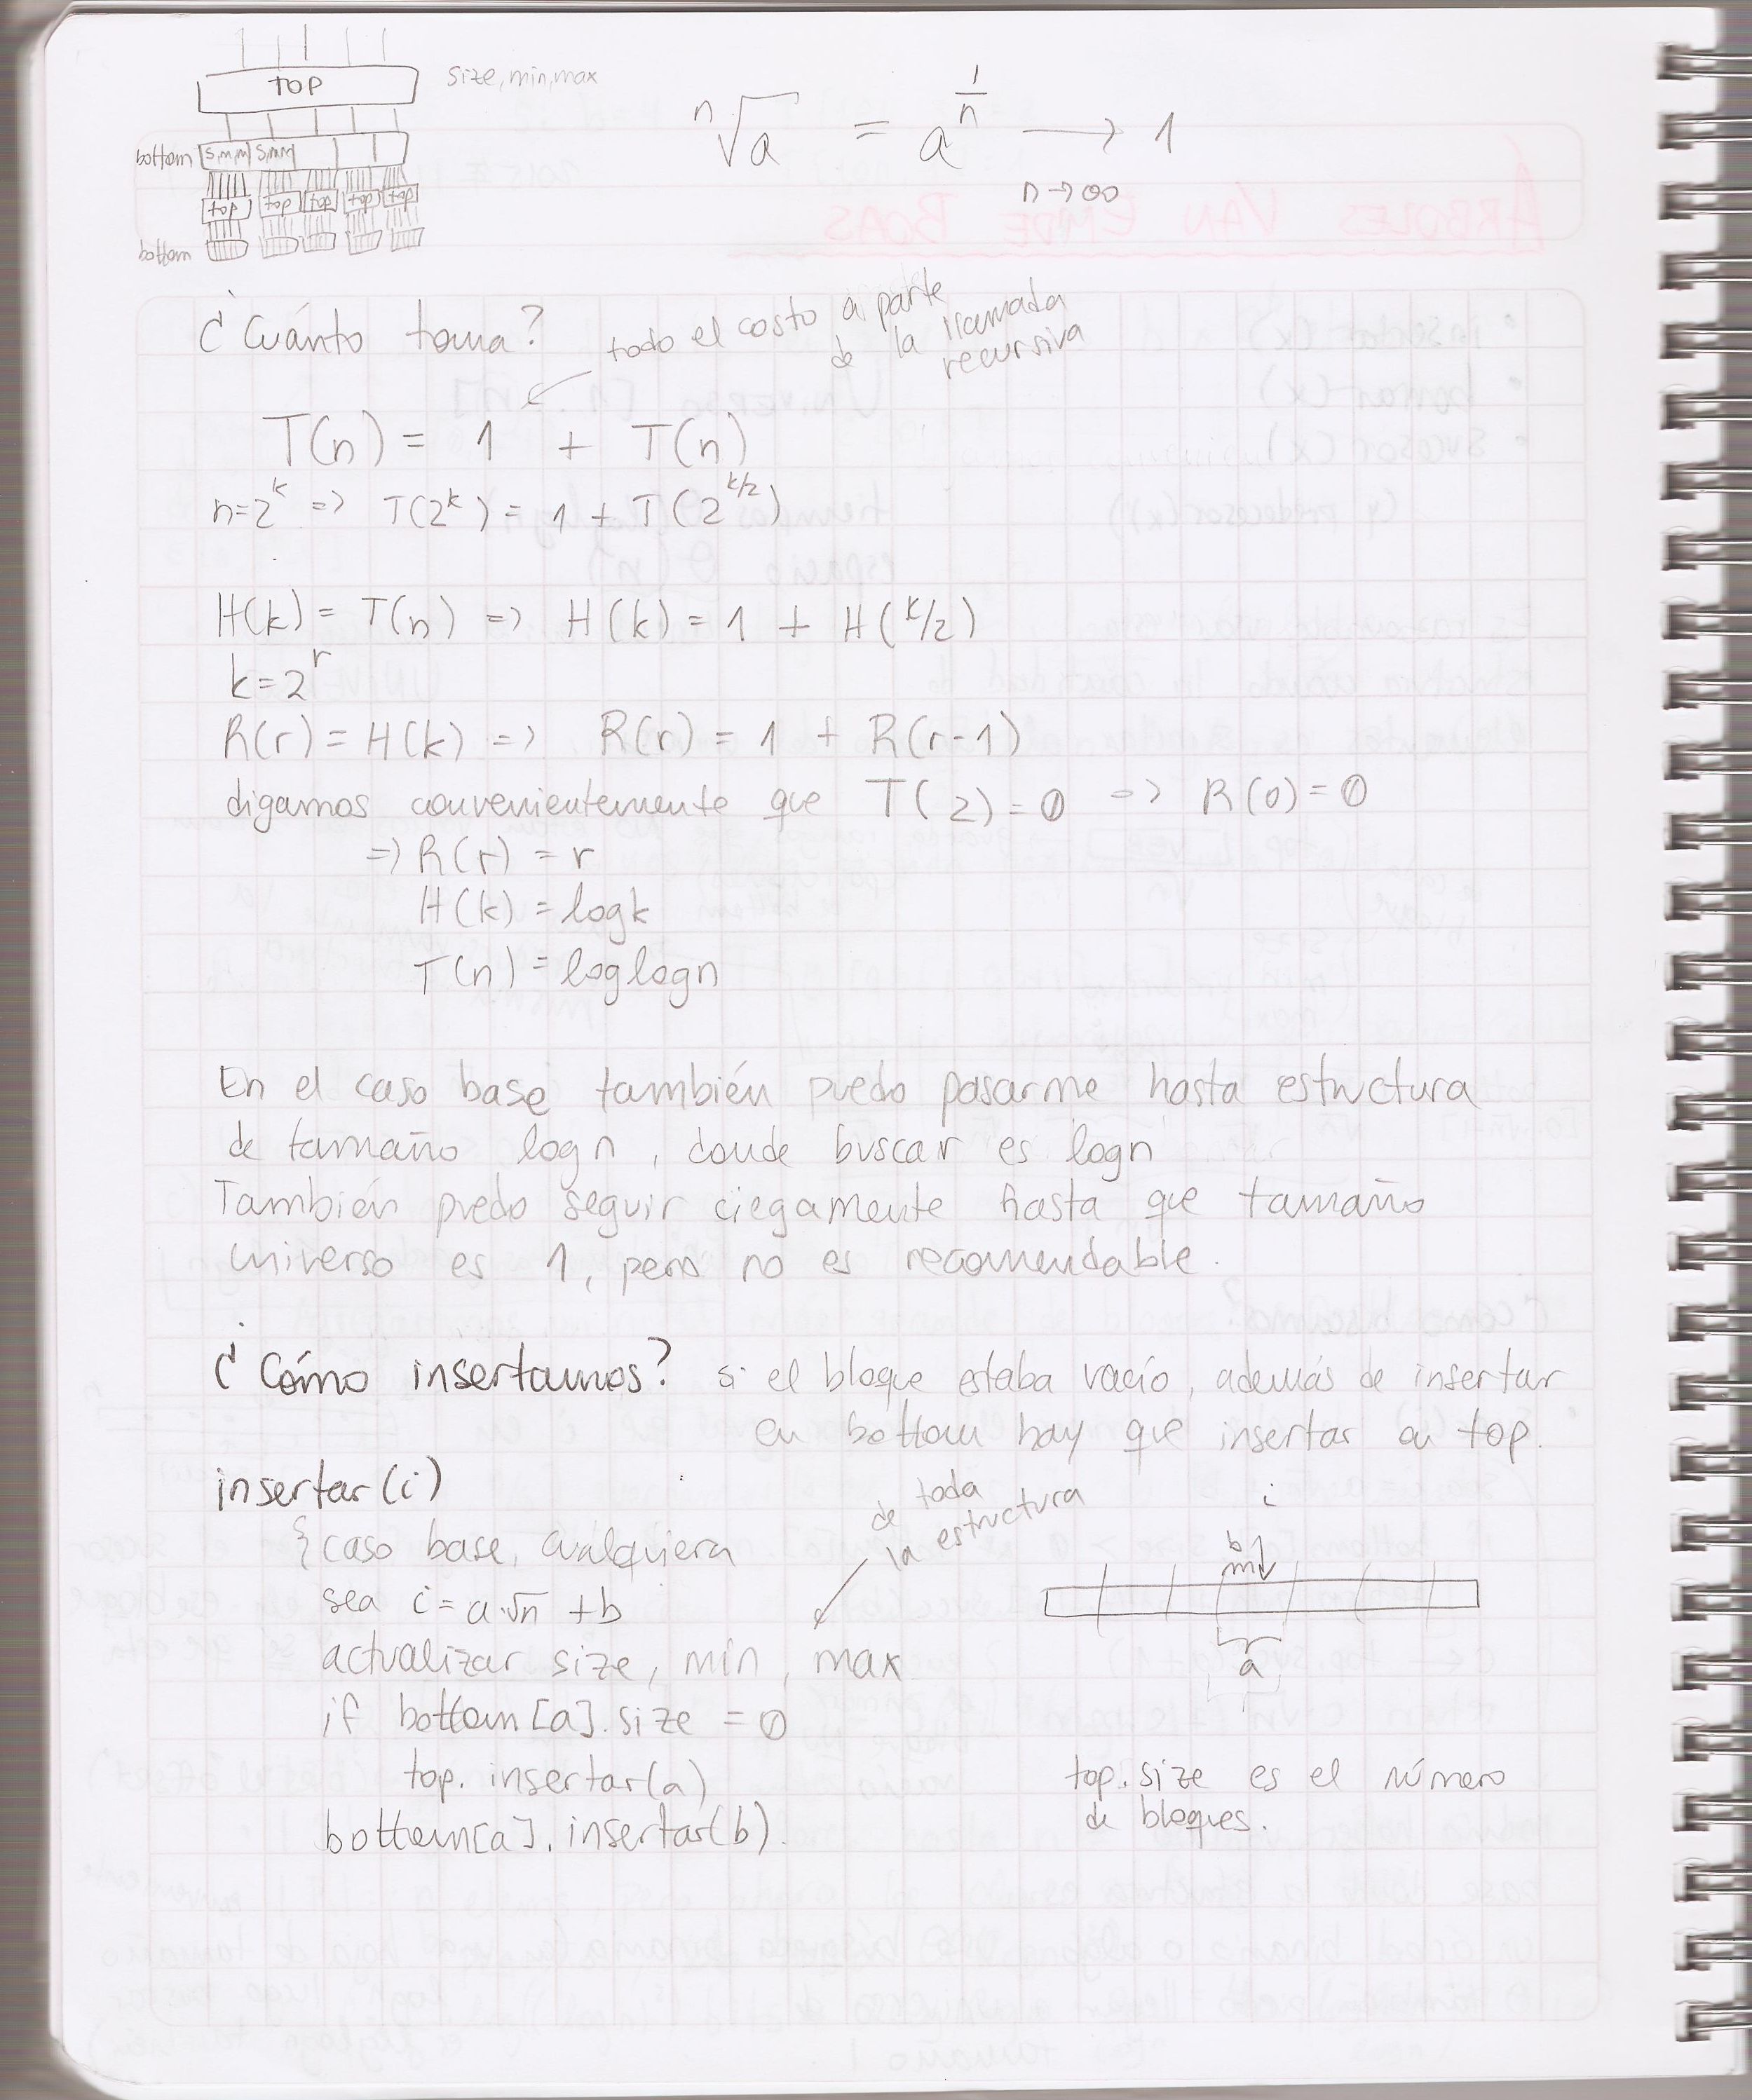 TOP
size, min, max
bottom s,m,m s,m,m
top top top top top
bottom
ⁿ√a = a^(1/n) → 1
n→∞
¿Cuánto toma?
todo el costo a parte
de la llamada
recursiva
T(n) = 1 + T(n)
n=2^k => T(2^k) = 1 + T(2^(k/2))
H(k) = T(n) => H(k) = 1 + H(k/2)
k=2^r
R(r) = H(k) => R(r) = 1 + R(r-1)
digamos convenientemente que T(2)=0 => R(0)=0
=> R(r) = r
H(k) = logk
T(n) = loglogn
En el caso base también puedo pasarme hasta estructura
de tamaño logn, donde buscar es logn
También puedo seguir ciegamente hasta que tamaño
universo es 1, pero no es recomendable.
¿Cómo insertamos? si el bloque estaba vacío, además de insertar
en bottom hay que insertar en top.
insertar(i)
{caso base, cualquiera
sea i = a·√n + b
de toda
la estructura
actualizar size, min, max
if bottom[a].size = 0
top.insertar(a)
bottom[a].insertar(b).
i
b
a
top.size es el número
de bloques.